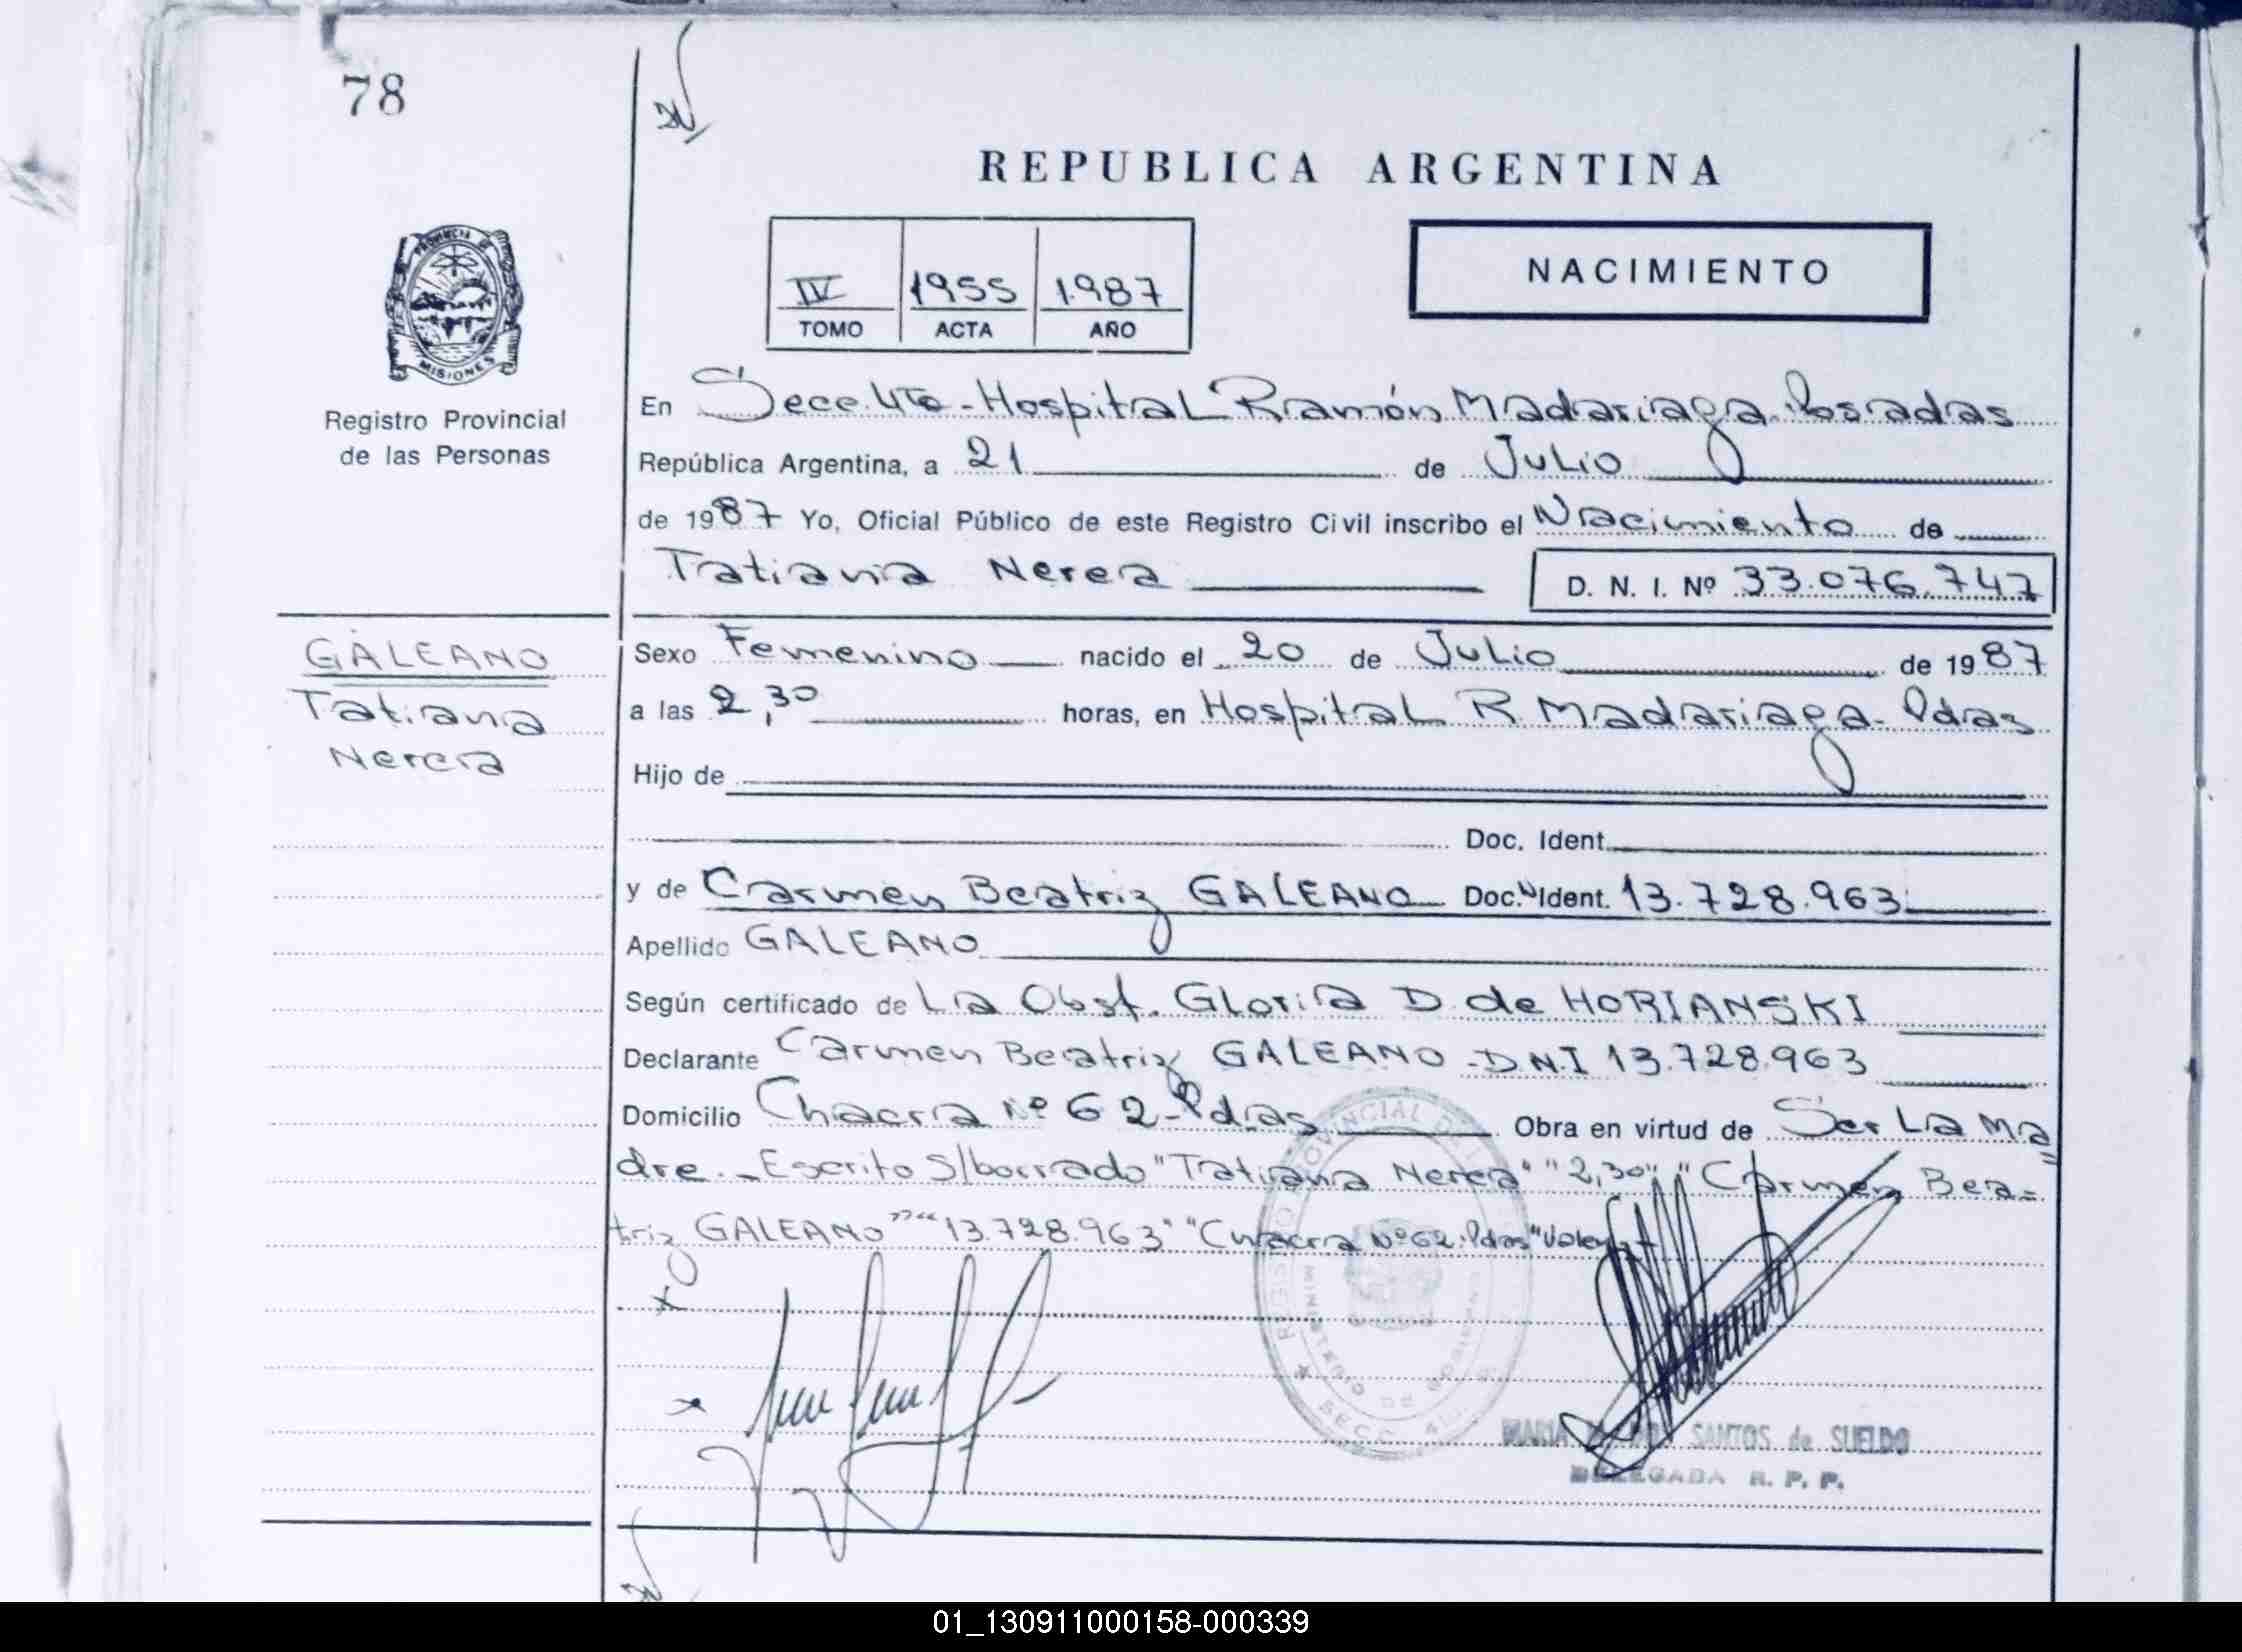 78
REPUBLICA ARGENTINA
IV 1955 1987
TOMO ACTA AÑO
NACIMIENTO
PROVINCIA DE MISIONES
Registro Provincial
de las Personas
En Secc. 4ta - Hospital Ramón Madariaga. Posadas
República Argentina, a 21 de Julio
de 1987 Yo, Oficial Público de este Registro Civil inscribo el Nacimiento de
Tatiana Nerea D. N. I. Nº 33.076.747
GALEANO
Tatiana
Nerea
Sexo Femenino nacido el 20 de Julio de 1987
a las 2,30 horas, en Hospital R. Madariaga - Pdas
Hijo de
Doc. Ident.
y de Carmen Beatriz GALEANO Doc. Ident. 13.728.963
Apellido GALEANO
Según certificado de La Obst. Gloria D. de HORIANSKI
Declarante Carmen Beatriz GALEANO - D.N.I 13.728.963
Domicilio Chacra Nº 62 - Pdas Obra en virtud de Ser La Ma
dre. - Escrito s/borrado "Tatiana Nerea" "2,30" "Carmen Bea=
triz GALEANO" "13.728.963" "Chacra Nº 62. Pdas" Valen
REGISTRO PROVINCIAL DE
MINISTERIO DE GOBIERNO
SECC. 4
MARIA SANTOS de SUELDO
DELEGADA R. P. P.
01_130911000158-000339